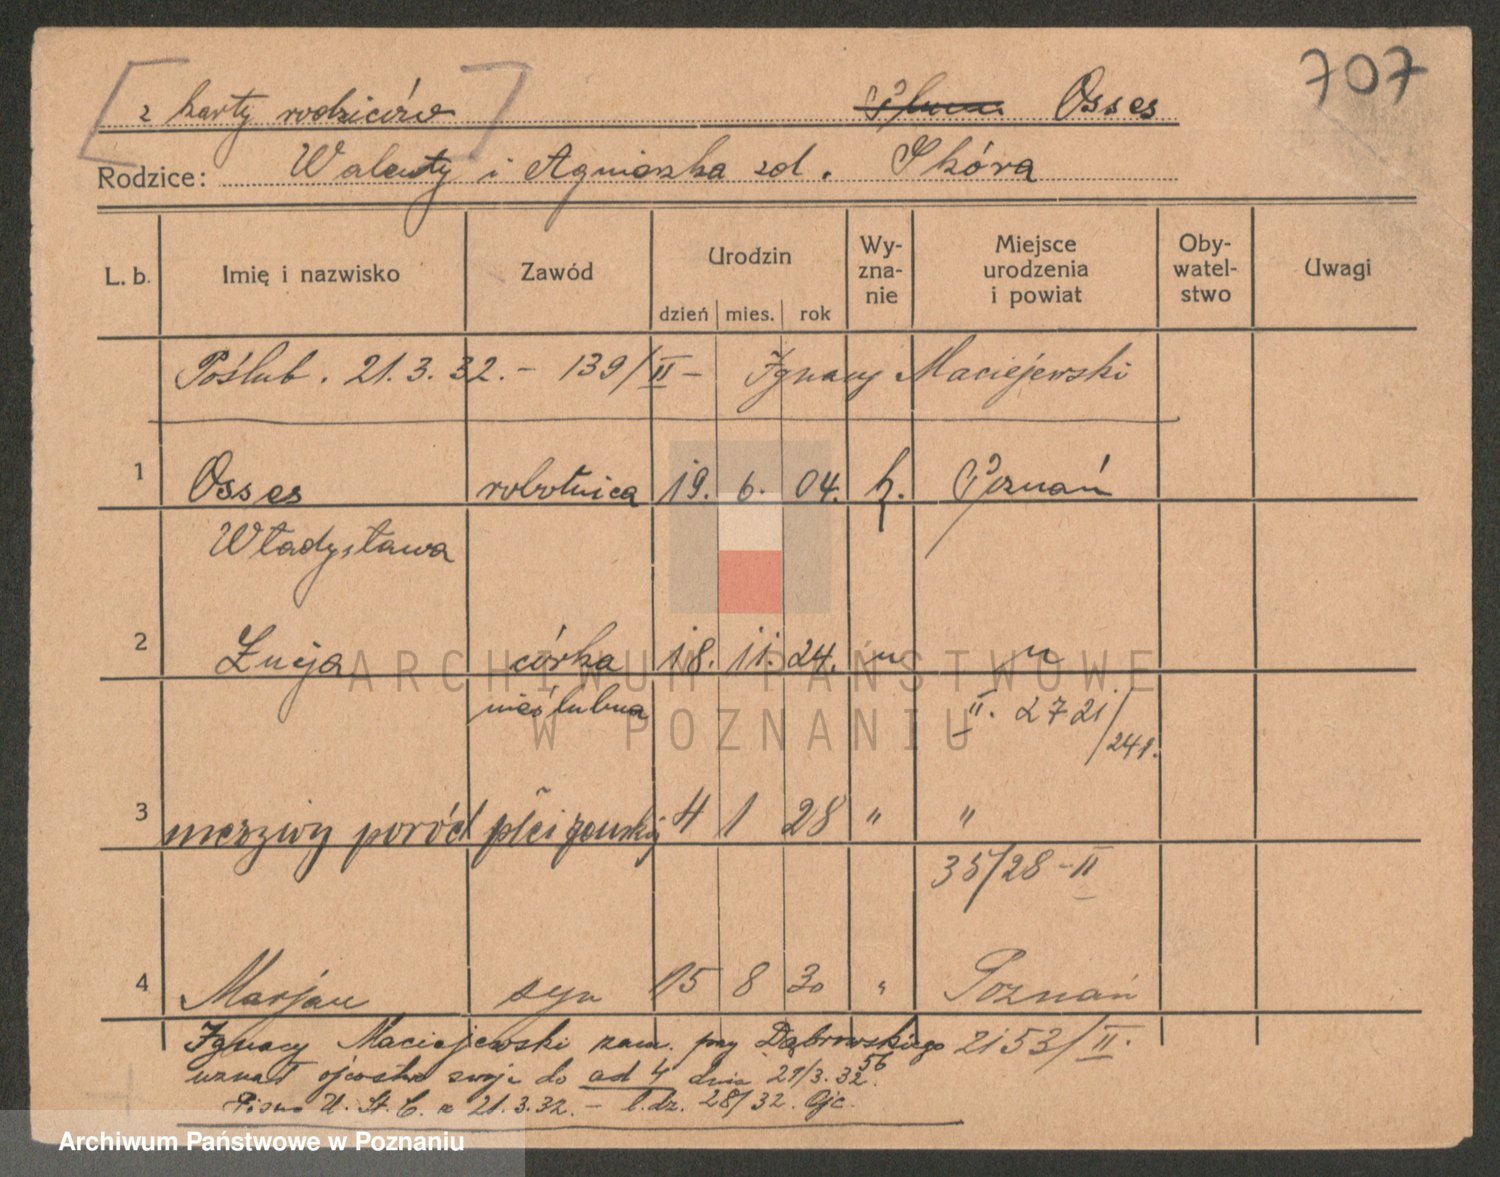 707
z karty rodziców Osses
Rodzice: Walenty i Agnieszka zd. Skóra
L. b. Imię i nazwisko Zawód Urodzin dzień mies. rok Wy-zna-nie Miejsce urodzenia i powiat Oby-watel-stwo Uwagi
Poślub. 21.3.32. – 139/II – Ignacy Maciejewski
1 Osses robotnica 19. 6. 04. k. Poznań
Władysława
2 Łucja córka 18. 11. 24. " "
nieślubna II. 2721/241.
3 nieżywy poród płci żeńskiej 4 1 28 " "
35/28 – II
4 Marjan syn 15 8 30 " Poznań
Ignacy Maciejewski zam. przy Dąbrowskiego 56 2153/II.
uznał ojcostwo swoje do ad 4 dnia 21/3.32.
Pismo U. St. C. z 21.3.32. – l. dz. 28/32.
ARCHIWUM PAŃSTWOWE
W POZNANIU
Archiwum Państwowe w Poznaniu